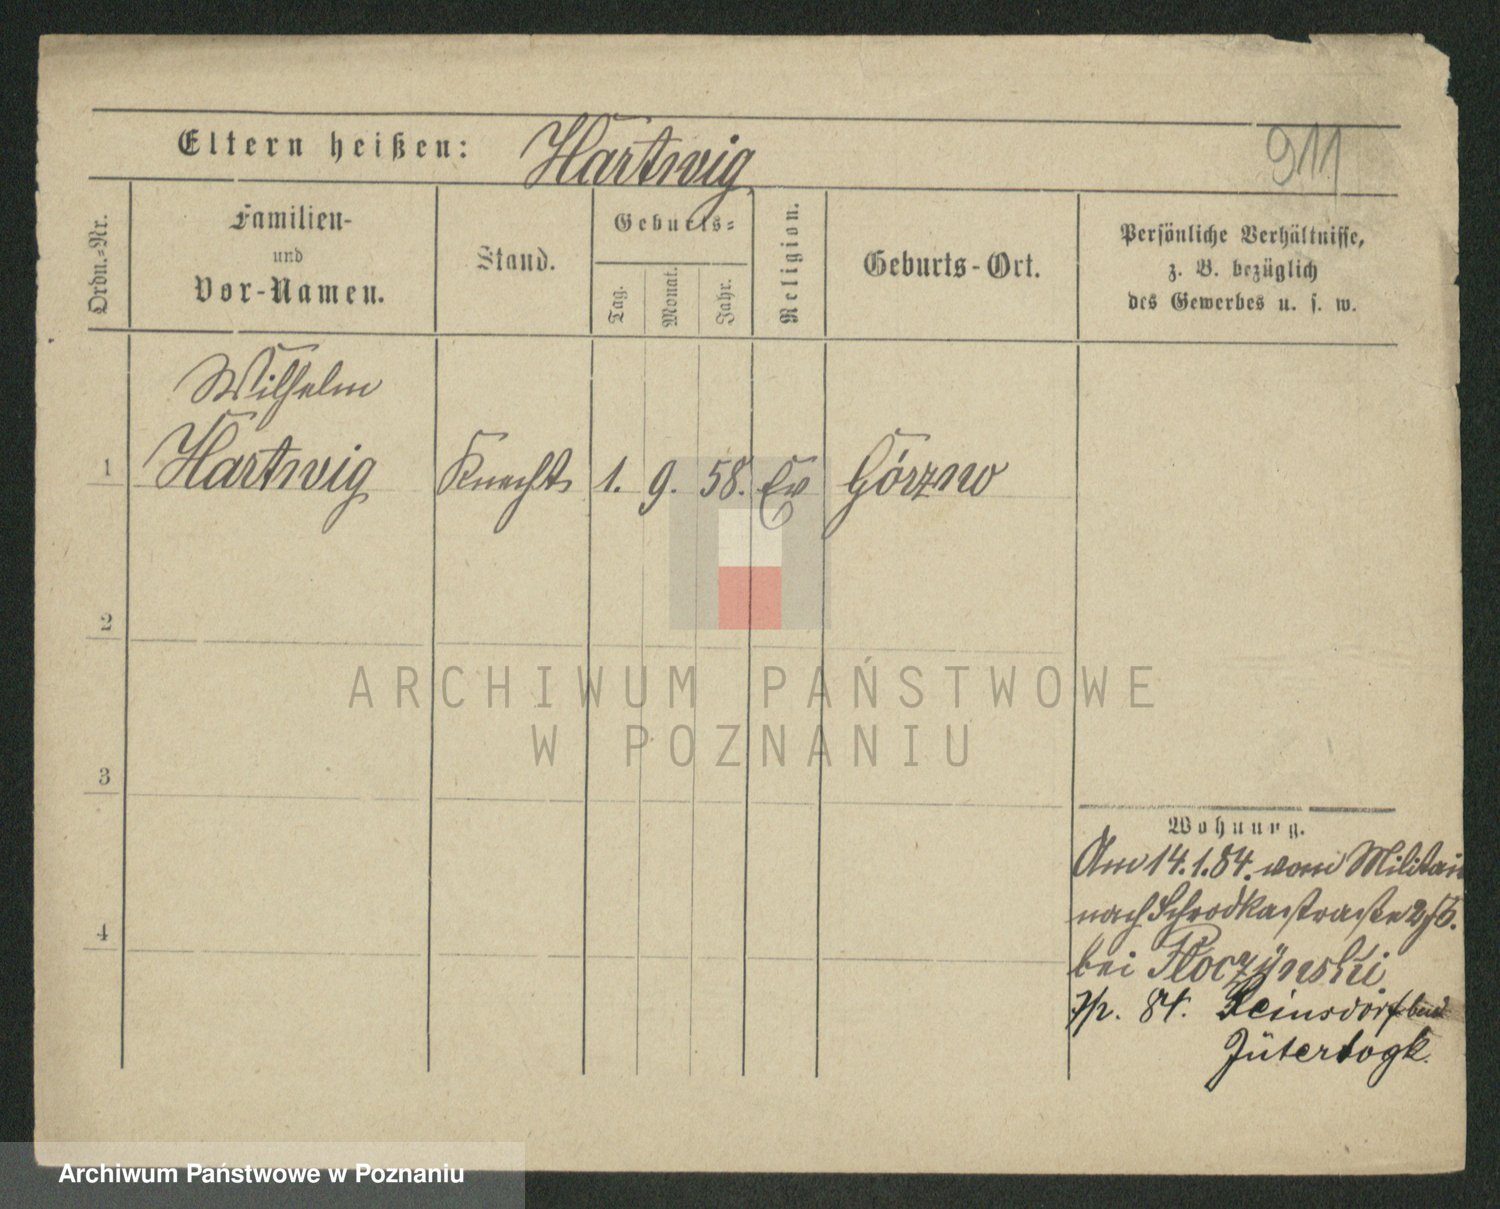 Eltern heißen: Hartwig
911
Ordn.-Nr.
Familien-
und
Vor-Namen.
Stand.
Geburts-
Tag.
Monat.
Jahr.
Religion.
Geburts-Ort.
Persönliche Verhältnisse,
z. B. bezüglich
des Gewerbes u. s. w.
Wilhelm
1 Hartwig Knecht 1. 9. 58. Ev Górzno
2
ARCHIWUM PAŃSTWOWE
W POZNANIU
3
Wohnung.
Am 14.1.84. vom Militair
nach Schrodkastraße
4
bei
84. Leinsdorf bei
Jüterbogk.
Archiwum Państwowe w Poznaniu